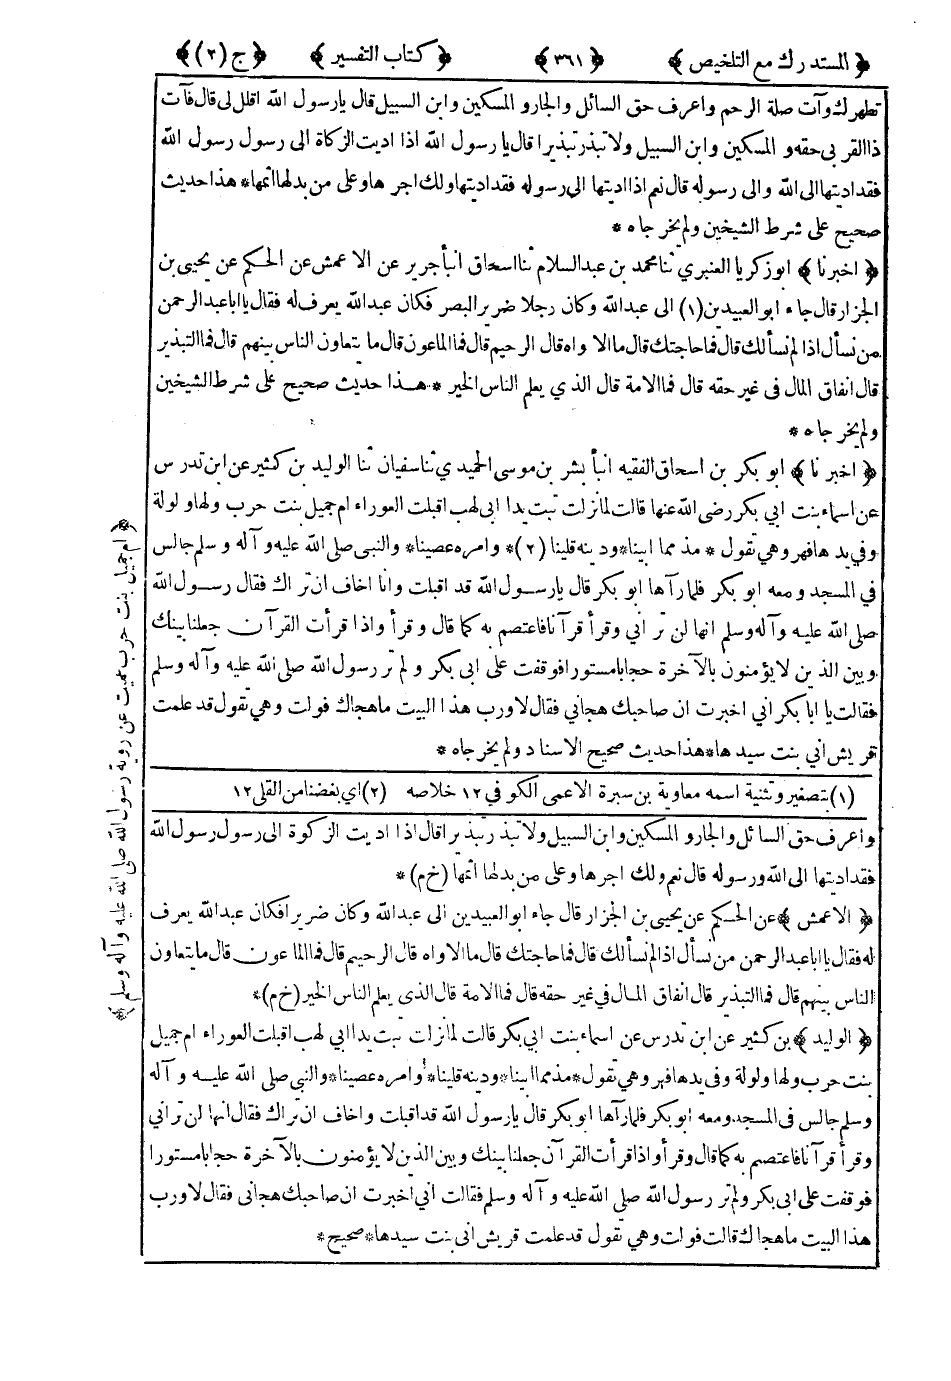 ﴿ المستدرك مع التلخيص ﴾ ﴿ ٣٦١ ﴾ ﴿ كتاب التفسير ﴾ ﴿ ج (٢) ﴾
تطهرك وآت صلة الرحم واعرف حق السائل والجار والمسكين وابن السبيل قال يا رسول الله اقلل لى قال فآت
ذا القربى حقه والمسكين وابن السبيل ولا تبذر تبذيرا قال يا رسول الله اذا اديت الزكاة الى رسول رسول الله
فقد اديتها الى الله والى رسوله قال نعم اذا اديتها الى رسوله فقد اديتها ولك اجرها وعلى من بدلها اثمها * هذا حديث
صحيح على شرط الشيخين ولم يخرجاه *
﴿ اخبرنا ﴾ ابو زكريا العنبري ثنا محمد بن عبد السلام ثنا اسحاق انبأ جرير عن الاعمش عن الحكم عن يحيى بن
الجزار قال جاء ابو العبيدين (١) الى عبد الله وكان رجلا ضرير البصر فكان عبد الله يعرف له فقال يا ابا عبد الرحمن
من نسأل اذا لم نسألك قال فما حاجتك قال ما الاواه قال الرحيم قال فما الماعون قال ما يتعاون الناس بينهم قال فما التبذير
قال انفاق المال فى غير حقه قال فما الامة قال الذي يعلم الناس الخير * هذا حديث صحيح على شرط الشيخين
ولم يخرجاه *
﴿ اخبرنا ﴾ ابو بكر بن اسحاق الفقيه انبأ بشر بن موسى الحميدي ثنا سفيان ثنا الوليد بن كثير عن ابن تدرس
عن اسماء بنت ابي بكر رضى الله عنها قالت لما نزلت تبت يدا ابى لهب اقبلت العوراء ام جميل بنت حرب ولها ولولة
وفي يدها فهر وهي تقول * مذمما ابينا * ودينه قلينا (٢) * وامره عصينا * والنبى صلى الله عليه وآله وسلم جالس
في المسجد ومعه ابو بكر فلما رآها ابو بكر قال يا رسول الله قد اقبلت وانا اخاف ان تراك فقال رسول الله
صلى الله عليه وآله وسلم انها لن تراني وقرأ قرآنا فاعتصم به كما قال وقرأ واذا قرأت القرآن جعلنا بينك
وبين الذين لا يؤمنون بالآخرة حجابا مستورا فوقفت على ابى بكر ولم تر رسول الله صلى الله عليه وآله وسلم
فقالت يا ابا بكر اني اخبرت ان صاحبك هجاني فقال لا ورب هذا البيت ما هجاك فولت وهي تقول قد علمت
قريش اني بنت سيدها * هذا حديث صحيح الاسناد ولم يخرجاه *
(١) بتصغير وتثنية اسمه معاوية بن سبرة الاعمى الكوفي ١٢ خلاصه (٢) اي بغضنا من القلى ١٢
واعرف حق السائل والجار والمسكين وابن السبيل ولا تبذر تبذيرا قال اذا اديت الزكوة الى رسول رسول الله
فقد اديتها الى الله ورسوله قال نعم ولك اجرها وعلى من بدلها اثمها (خ م) *
﴿ الاعمش ﴾ عن الحكم عن يحيى بن الجزار قال جاء ابو العبيدين الى عبد الله وكان ضريرا فكان عبد الله يعرف
له فقال يا ابا عبد الرحمن من نسأل اذا لم نسألك قال فما حاجتك قال ما الاواه قال الرحيم قال فما الماعون قال ما يتعاون
الناس بينهم قال فما التبذير قال انفاق المال في غير حقه قال فما الامة قال الذى يعلم الناس الخير (خ م) *
﴿ الوليد ﴾ بن كثير عن ابن تدرس عن اسماء بنت ابي بكر قالت لما نزلت تبت يدا ابي لهب اقبلت العوراء ام جميل
بنت حرب ولها ولولة وفى يدها فهر وهي تقول * مذمما ابينا * ودينه قلينا * وامره عصينا * والنبي صلى الله عليه وآله
وسلم جالس فى المسجد ومعه ابو بكر فلما رآها ابو بكر قال يا رسول الله قد اقبلت واخاف ان تراك فقال انها لن تراني
وقرأ قرآنا فاعتصم به كما قال وقرأ واذا قرأت القرآن جعلنا بينك وبين الذين لا يؤمنون بالآخرة حجابا مستورا
فوقفت على ابى بكر ولم تر رسول الله صلى الله عليه وآله وسلم فقالت اني اخبرت ان صاحبك هجانى فقال لا ورب
هذا البيت ما هجاك قالت فولت وهي تقول قد علمت قريش انى بنت سيدها * صحيح *
﴿ ام جميل بنت حرب عميت عن روية رسول الله صلى الله عليه وآله وسلم ﴾